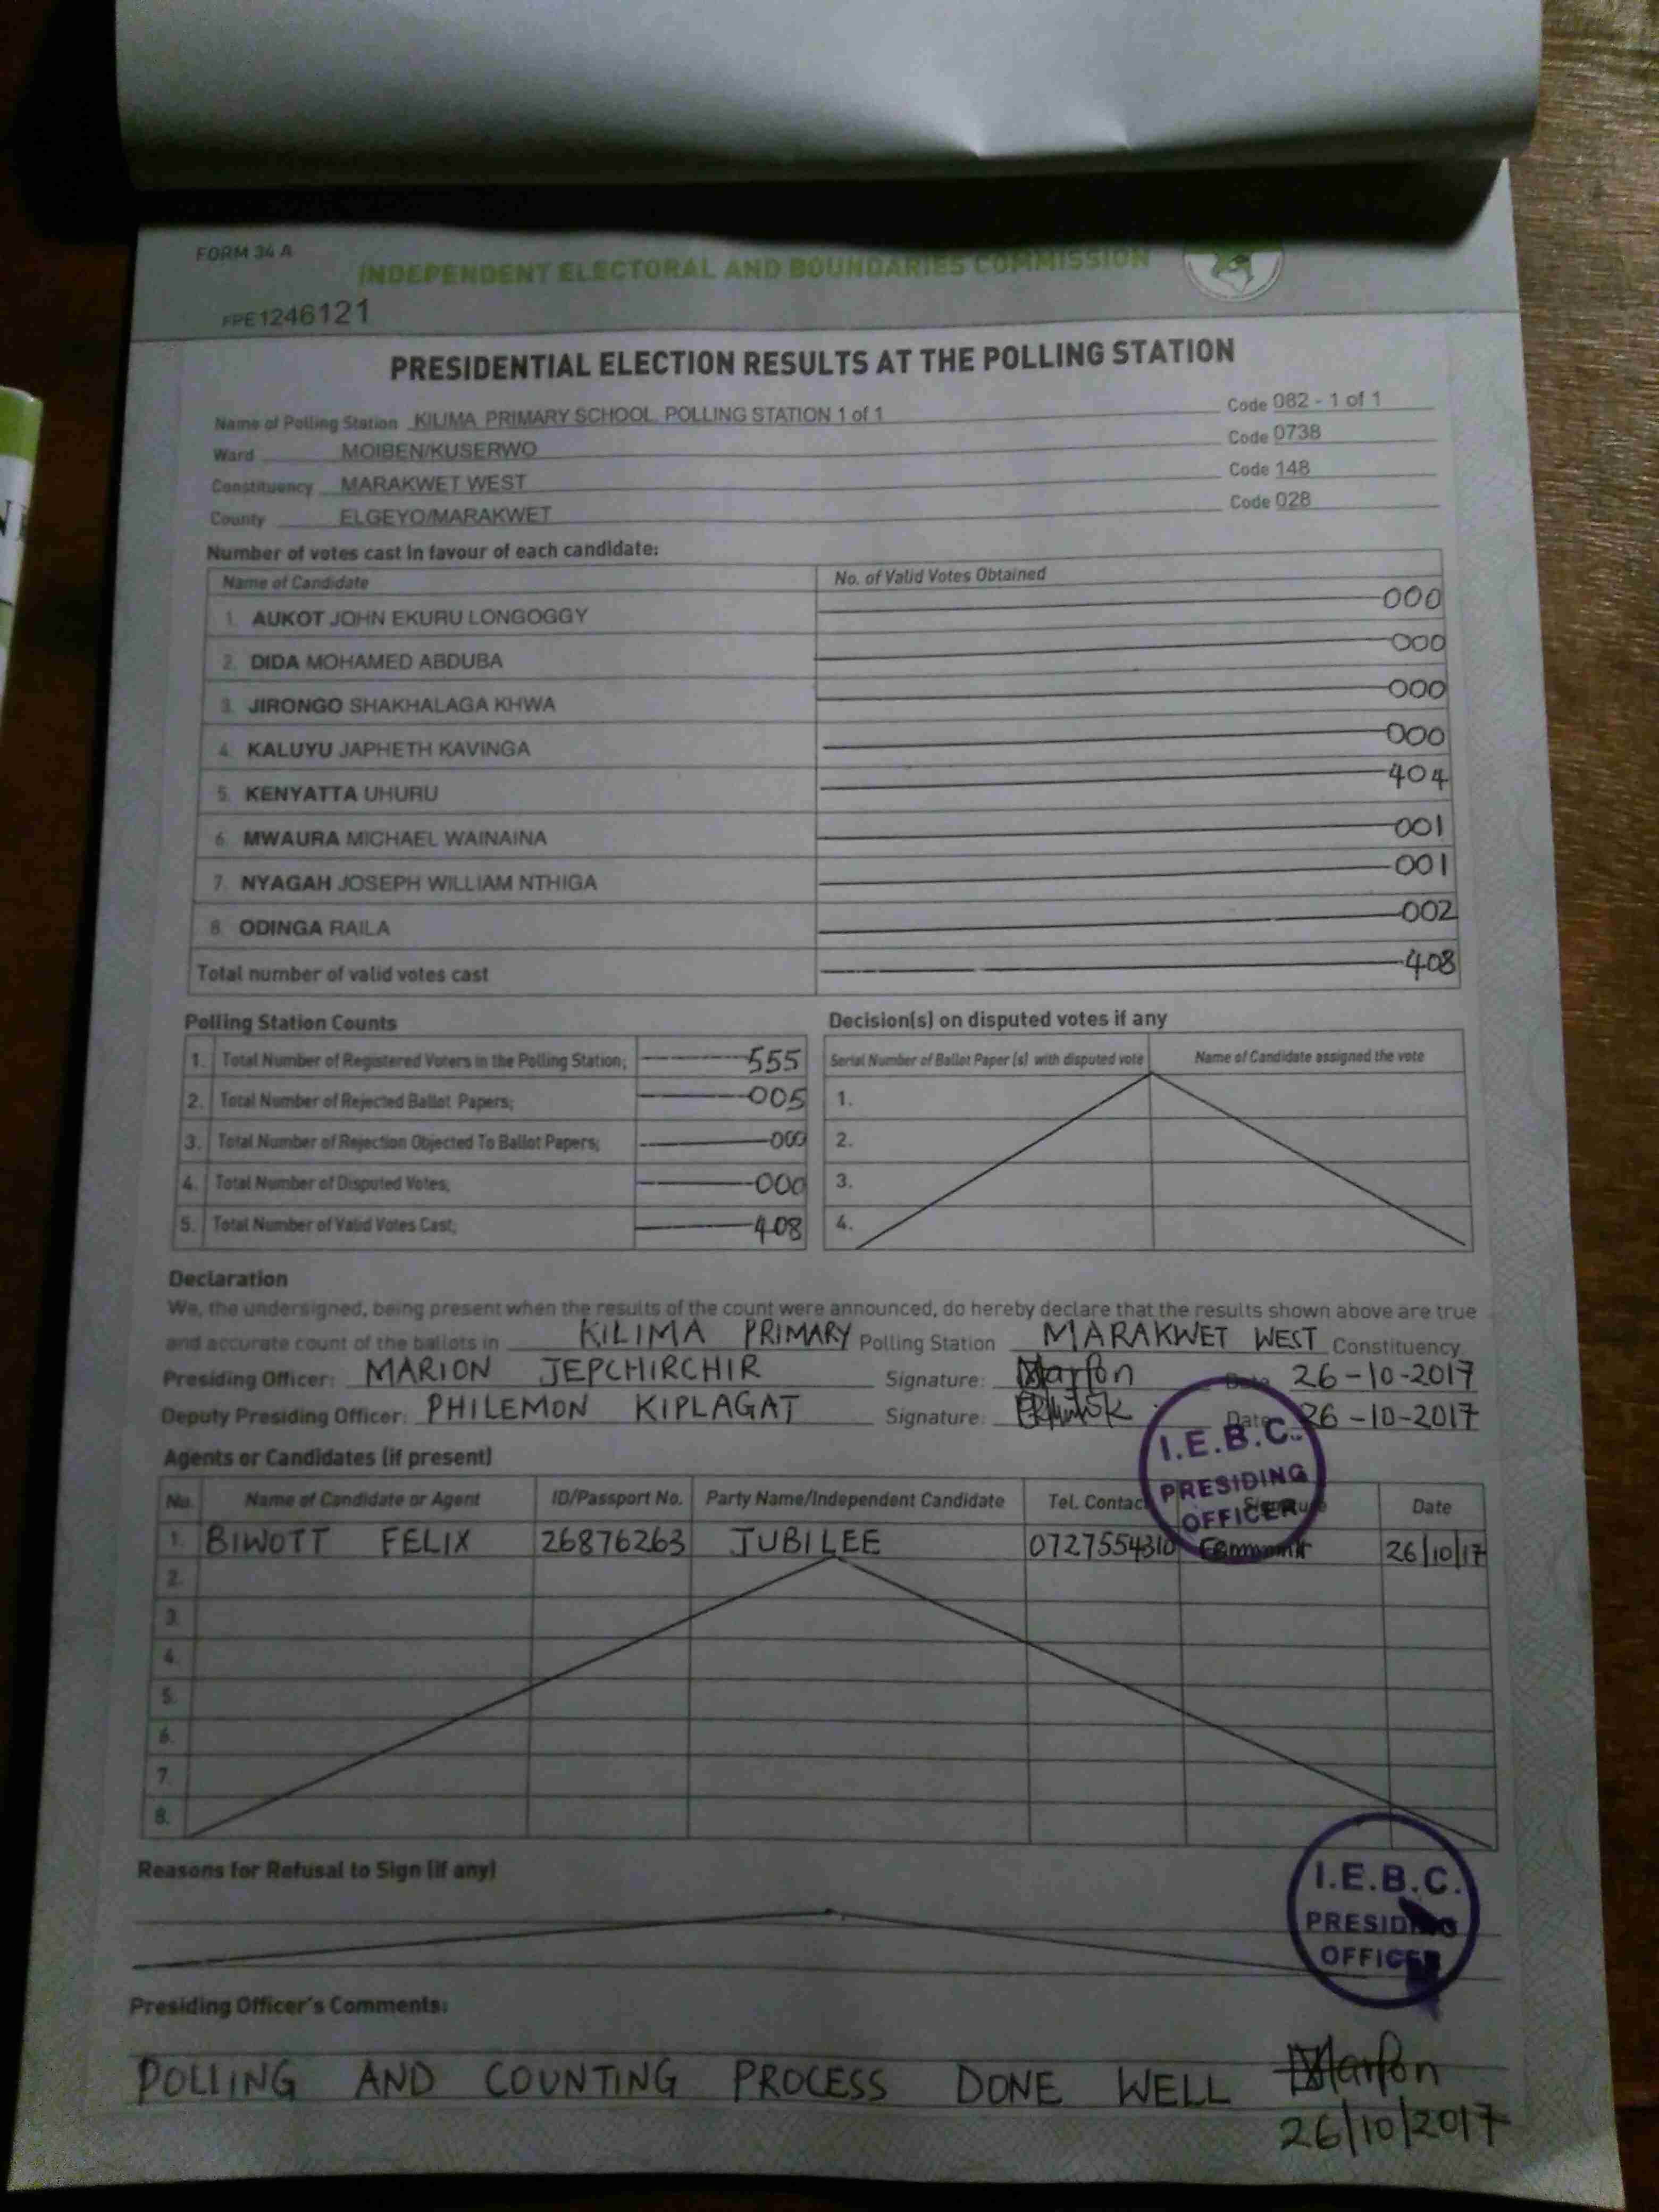 FORM 34 A
INDEPENDENT ELECTORAL AND BOUNDARIES COMMISSION
FPE1246121
PRESIDENTIAL ELECTION RESULTS AT THE POLLING STATION
Name of Polling Station KILIMA PRIMARY SCHOOL POLLING STATION 1 of 1 Code 082 - 1 of 1
Ward MOIBEN/KUSERWO Code 0738
Constituency MARAKWET WEST Code 148
County ELGEYO/MARAKWET Code 028
Number of votes cast in favour of each candidate:
Name of Candidate No. of Valid Votes Obtained
1. AUKOT JOHN EKURU LONGOGGY 000
2. DIDA MOHAMED ABDUBA 000
3. JIRONGO SHAKHALAGA KHWA 000
4. KALUYU JAPHETH KAVINGA 000
5. KENYATTA UHURU 404
6. MWAURA MICHAEL WAINAINA 001
7. NYAGAH JOSEPH WILLIAM NTHIGA 001
8. ODINGA RAILA 002
Total number of valid votes cast 408
Polling Station Counts
1. Total Number of Registered Voters in the Polling Station; 555
2. Total Number of Rejected Ballot Papers; 005
3. Total Number of Rejection Objected To Ballot Papers; 000
4. Total Number of Disputed Votes; 000
5. Total Number of Valid Votes Cast; 408
Decision(s) on disputed votes if any
Serial Number of Ballot Paper (s) with disputed vote Name of Candidate assigned the vote
1.
2.
3.
4.
Declaration
We, the undersigned, being present when the results of the count were announced, do hereby declare that the results shown above are true
and accurate count of the ballots in KILIMA PRIMARY Polling Station MARAKWET WEST Constituency.
Presiding Officer: MARION JEPCHIRCHIR Signature: Date 26-10-2017
Deputy Presiding Officer: PHILEMON KIPLAGAT Signature: Date 26-10-2017
I.E.B.C.
PRESIDING
OFFICER
Agents or Candidates (if present)
No. Name of Candidate or Agent ID/Passport No. Party Name/Independent Candidate Tel. Contact Signature Date
1. BIWOTT FELIX 26876263 JUBILEE 0727554310 26/10/17
2.
3.
4.
5.
6.
7.
8.
Reasons for Refusal to Sign (if any)
I.E.B.C.
PRESIDING
OFFICER
Presiding Officer's Comments:
POLLING AND COUNTING PROCESS DONE WELL
26/10/2017